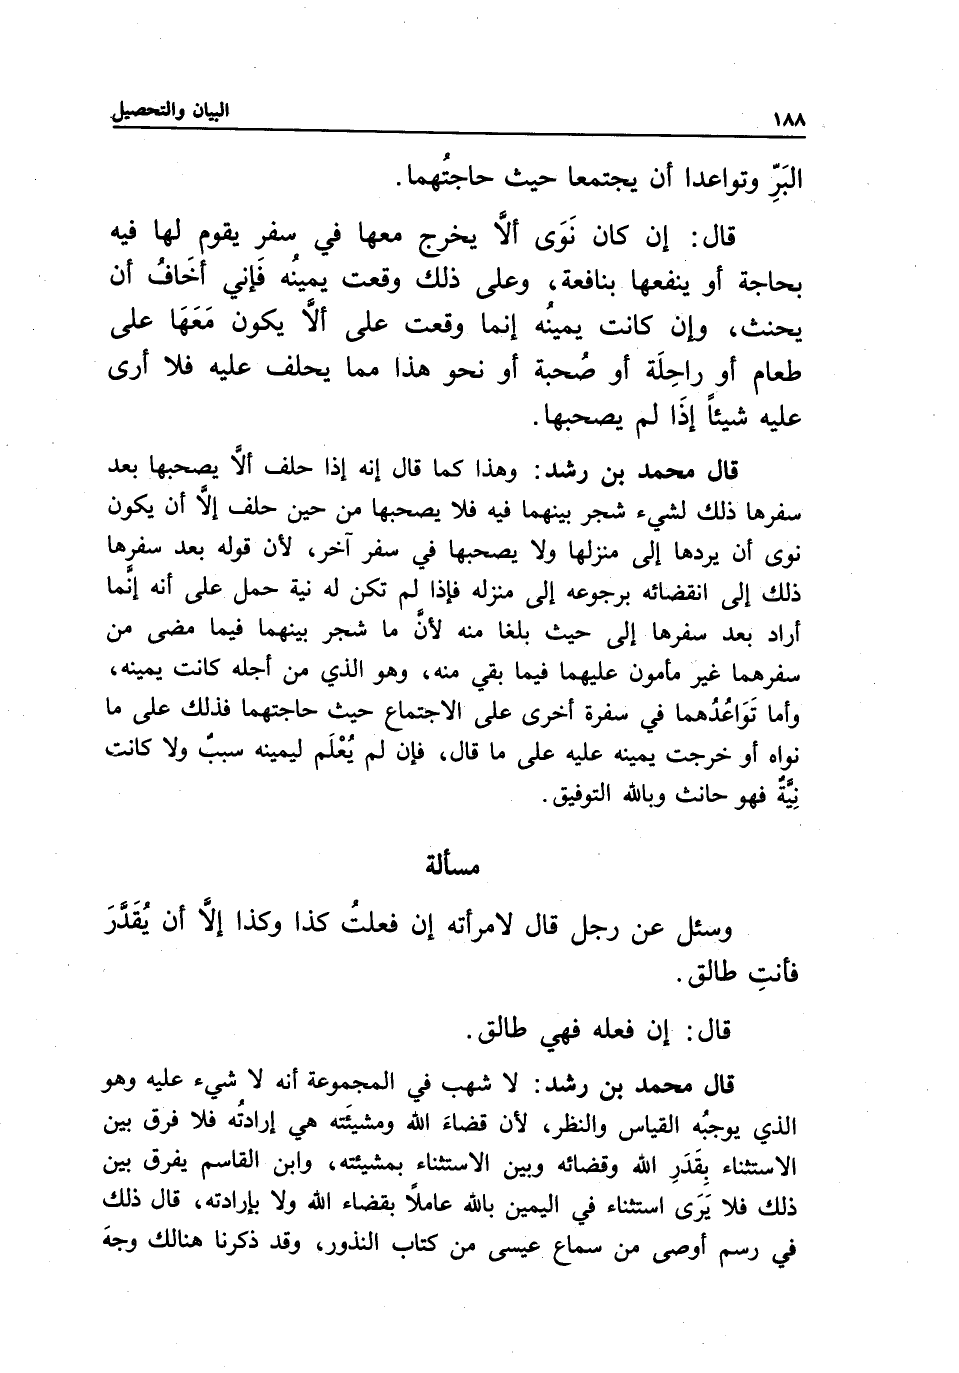 ١٨٨ البيان والتحصيل
البَرِّ وتواعدا أن يجتمعا حيث حاجتُهما.
قال: إن كان نَوَى ألاَّ يخرج معها في سفر يقوم لها فيه
بحاجة أو ينفعها بنافعة، وعلى ذلك وقعت يمينُه فَإني أخَافُ أن
يحنث، وإن كانت يمينُه إنما وقعت على ألاَّ يكون مَعَهَا على
طعام أو راحِلَة أو صُحبة أو نحو هذا مما يحلف عليه فلا أرى
عليه شيئاً إذَا لم يصحبها.
قال محمد بن رشد: وهذا كما قال إنه إذا حلف ألاَّ يصحبها بعد
سفرها ذلك لشيء شجر بينهما فيه فلا يصحبها من حين حلف إلاَّ أن يكون
نوى أن يردها إلى منزلها ولا يصحبها في سفر آخر، لأن قوله بعد سفرها
ذلك إلى انقضائه برجوعه إلى منزله فإذا لم تكن له نية حمل على أنه إنَّما
أراد بعد سفرها إلى حيث بلغا منه لأنَّ ما شجر بينهما فيما مضى من
سفرهما غير مأمون عليهما فيما بقي منه، وهو الذي من أجله كانت يمينه،
وأما تَوَاعُدُهما في سفرة أخرى على الاجتماع حيث حاجتهما فذلك على ما
نواه أو خرجت يمينه عليه على ما قال، فإن لم يُعْلَم ليمينه سببٌ ولا كانت
نِيَّةٌ فهو حانث وبالله التوفيق.
مسألة
وسئل عن رجل قال لامرأته إن فعلتُ كذا وكذا إلاَّ أن يُقَدَّرَ
فأنتِ طالق.
قال: إن فعله فهي طالق.
قال محمد بن رشد: لا شهب في المجموعة أنه لا شيء عليه وهو
الذي يوجبُه القياس والنظر، لأن قضاءَ الله ومشيئَته هي إرادتُه فلا فرق بين
الاستثناء بِقَدَرِ الله وقضائه وبين الاستثناء بمشيئته، وابن القاسم يفرق بين
ذلك فلا يَرَى استثناء في اليمين بالله عاملاً بقضاء الله ولا بإرادته، قال ذلك
في رسم أوصى من سماع عيسى من كتاب النذور، وقد ذكرنا هنالك وجهَ